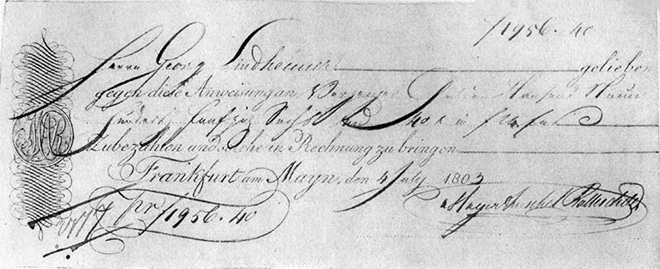 f 1956.40
Herrn Georg Lindheimer gelieben
gegen diese Anweisung an Vorzeiger Ein Tausend Neun
hundert fünfzig Sechs und 40 x in
Zubezahlen und solche in Rechnung zu bringen
Frankfurt am Mayn, den 4 July 1803
pr f 1956.40
Mayer Amschel Rothschild
MAR